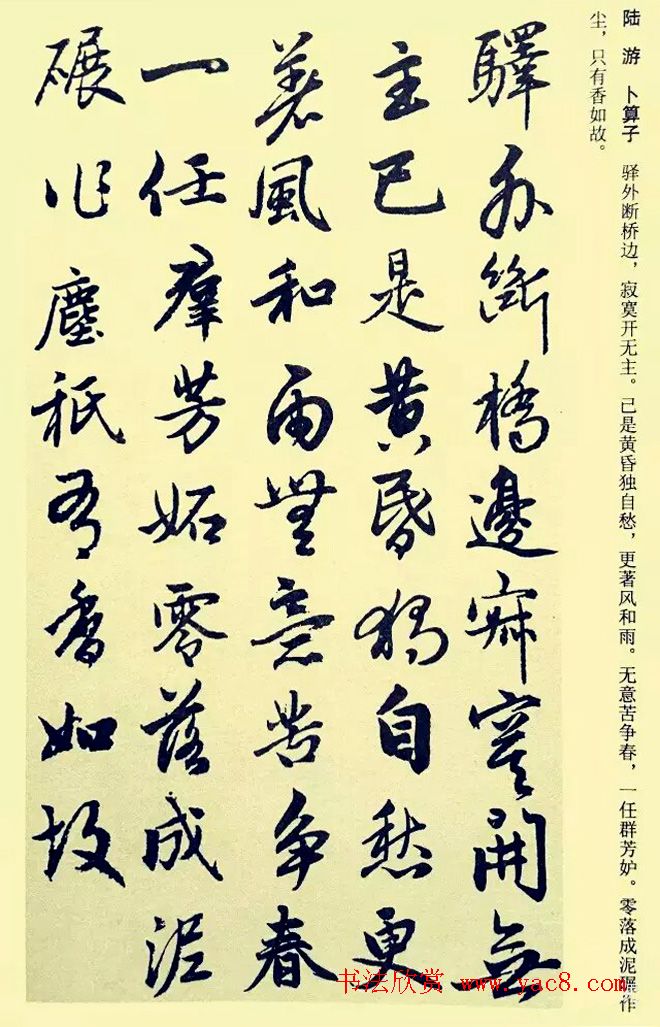 陆游 卜算子 驿外断桥边，寂寞开无主。已是黄昏独自愁，更著风和雨。无意苦争春，一任群芳妒。零落成泥碾作
尘，只有香如故。
驛外斷橋邊寂寞開無
主已是黄昏獨自愁更
著風和雨無意苦争春
一任羣芳妬零落成泥
碾作塵祇有香如故
书法欣赏 www.yac8.com